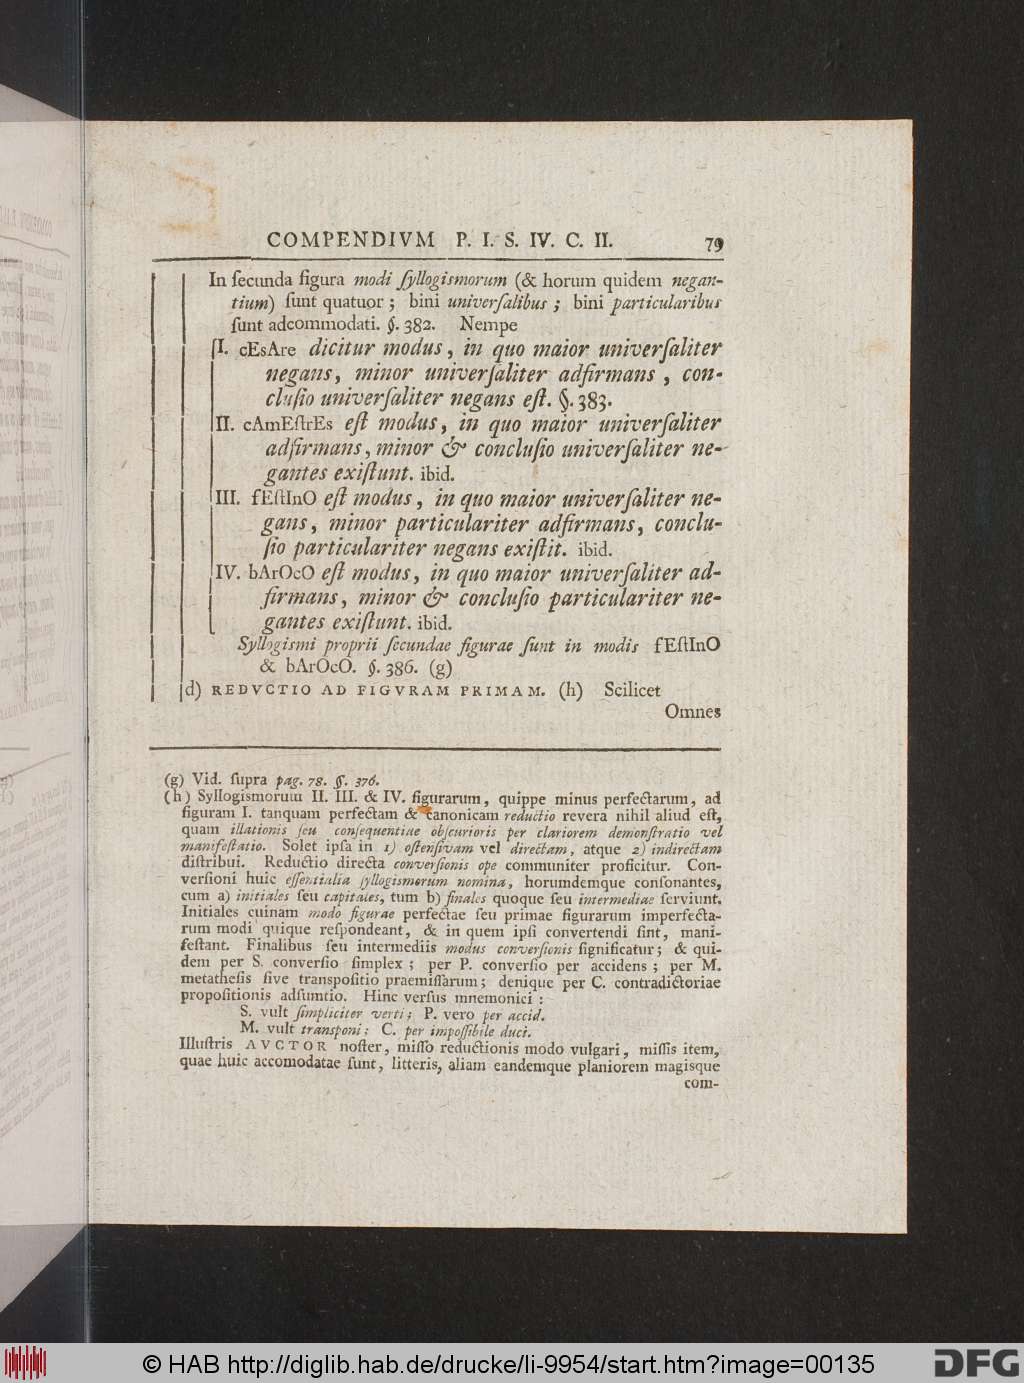 COMPENDIVM P. I. S. IV. C. II. 79
In ſecunda figura modi ſyllogismorum (& horum quidem negan-
tium) ſunt quatuor ; bini univerſalibus ; bini particularibus
ſunt adcommodati. §. 382. Nempe
I. cEsAre dicitur modus, in quo maior univerſaliter
negans, minor univerſaliter adfirmans , con-
cluſio univerſaliter negans eſt. §. 383.
II. cAmEſtrEs eſt modus, in quo maior univerſaliter
adfirmans, minor & concluſio univerſaliter ne-
gantes exiſtunt. ibid.
III. fEſtInO eſt modus, in quo maior univerſaliter ne-
gans, minor particulariter adfirmans, conclu-
ſio particulariter negans exiſtit. ibid.
IV. bArOcO eſt modus, in quo maior univerſaliter ad-
firmans, minor & concluſio particulariter ne-
gantes exiſtunt. ibid.
Syllogismi proprii ſecundae figurae ſunt in modis fEſtInO
& bArOcO. §. 386. (g)
d) REDVCTIO AD FIGVRAM PRIMAM. (h) Scilicet
Omnes
(g) Vid. ſupra pag. 78. §. 376.
(h) Syllogismorum II. III. & IV. figurarum, quippe minus perfectarum, ad
figuram I. tanquam perfectam & canonicam reductio revera nihil aliud eſt,
quam illationis ſeu conſequentiae obſcurioris per clariorem demonſtratio vel
manifeſtatio. Solet ipſa in 1) oſtenſivam vel directam, atque 2) indirectam
diſtribui. Reductio directa converſionis ope communiter proficitur. Con-
verſioni huic eſſentialia ſyllogismorum nomina, horumdemque conſonantes,
cum a) initiales ſeu capitales, tum b) finales quoque ſeu intermediae ſerviunt.
Initiales cuinam modo figurae perfectae ſeu primae figurarum imperfecta-
rum modi quique reſpondeant, & in quem ipſi convertendi ſint, mani-
feſtant. Finalibus ſeu intermediis modus converſionis ſignificatur; & qui-
dem per S. converſio ſimplex ; per P. converſio per accidens ; per M.
metatheſis ſive transpoſitio praemiſſarum; denique per C. contradictoriae
propoſitionis adſumtio. Hinc verſus mnemonici :
S. vult ſimpliciter verti; P. vero per accid.
M. vult transponi; C. per impoſſibile duci.
Illuſtris AVCTOR noſter, miſſo reductionis modo vulgari, miſſis item,
quae huic accomodatae ſunt, litteris, aliam eandemque planiorem magisque
com-
© HAB http://diglib.hab.de/drucke/li-9954/start.htm?image=00135
DFG